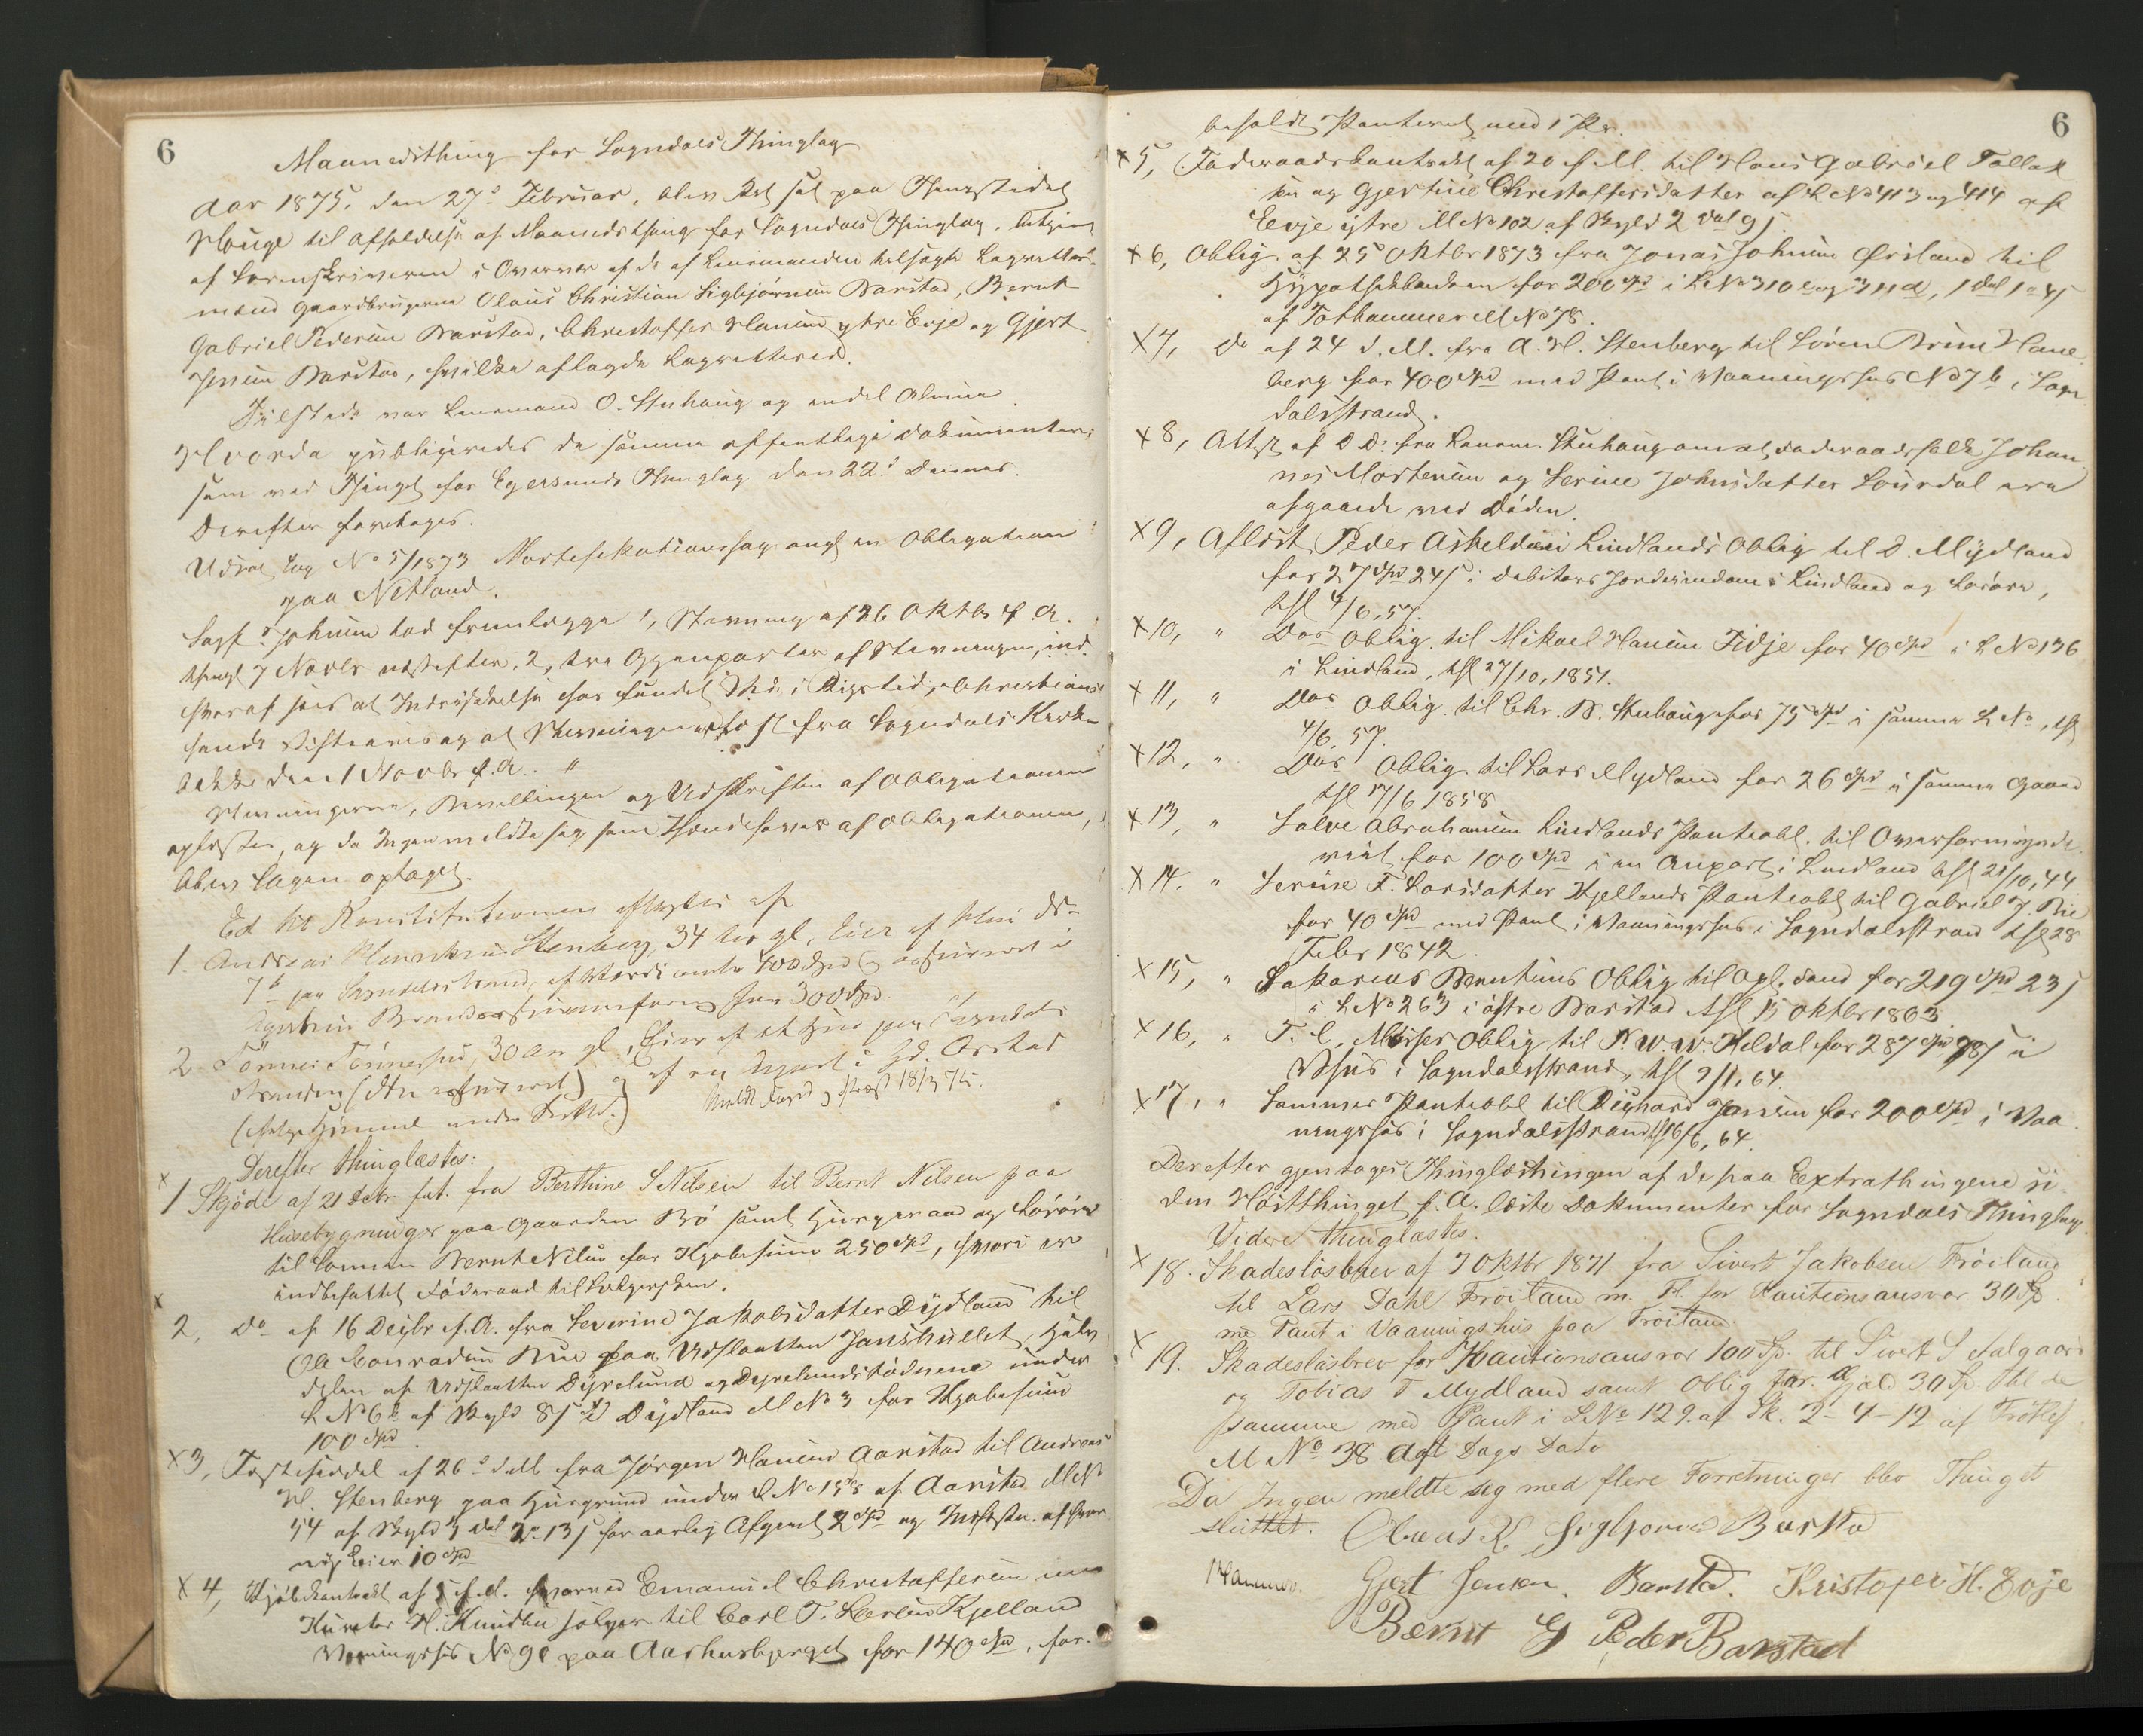 6
Maanedsthing for Sogndals Thinglag
Aar 1875, den 27de Februar, blev Ret sat paa Thingstedet
Hauge til Afholdelse af Maanedsthing for Sogndals Thinglag, betjent
af Sorenskriveren i Overvær af de af Lensmanden tilsagte Lagrettes-
mænd Gaardbrugerne Olaus Christian Sigbjørnsen Barstad, Bernt
Gabriel Pedersen Barstad, Christoffer Hansen ytre Evje og Gjert
Jensen Barstad, hvilke aflagde Lagretteed.
Tilstede var Lensmand O. Stuhaug og endel Almue.
Hvorda publiceredes de samme offentlige Dokumenter,
som ved Thinget for Egersunds Thinglag den 22de dennes.
Derefter foretoges.
Udsat Sag No 5/1873 Mortifikationssag angd en Obligation
paa Netland.
Sagf. Johnsen lod fremlægge 1, Stævning af 26 Oktbr f. A.
thingl. 7 Novbr næstefter, 2, tre Gjenparter af Stævningen,
hvoraf sees at Indrykkelse har fundet Sted i Rigstid., Christian-
sands Stiftsavis og at Stævningen er læst fra Sogndals Kirke-
bakke den 1 Novbr f. A. "
Stævningerne, Bevillingen og Udskriften af Obligationen
oplæstes, og da Ingen meldte sig som Ihændehaver af Obligationen,
blev Sagen optaget.
Ed til Konstitutionen aflagdes af
1. Andreas Henriksen Stenberg, 34 Aar gl, Eier af Hus No
7b paa Sogndalsstrand, af Værdi 400 Spd og assureret i
Brandassuranceforening for 300 Spd.
2. Tønnes Tønnesen, 30 Aar gl, Eier af et Hus paa Sogndals-
stranden (ikke assureret) og af en Anpart i Gd. Aarstad
Derefter thinglæstes:
x 1 Skjøde af 21 Debr. f.A. fra Berthine S Nilsen til Bernt Nilsen paa
Husebygninger paa Gaarden Bø samt Husgeraad og Løsøre
til Sønnen Bernt Nilsen for Kjøbesum 250 Spd, hvori er
indbefattet Føderaad til Sælgersken.
x
2, Do af 16 Decbr f. A. fra Severine Jakobsdatter Dydland til
Ole Conradsen Bue paa Udslaatten Janshullet, Halv-
delen af Udslaatten Dyrelund og Dyrelundstødnene under
L No 6b af Skyld Dydland M No 3 for Kjøbesum
100 Spd.
x 3, Festeseddel af 26de d. M. fra Jørgen Hansen Aarstad til Andreas
H. Stenberg paa Husgrund under L No 158 af Aarstad M No
54 af Skyld for aarlig Afgivt 2 Spd og Indfæstn. af hver
ny Eier 10 Spd
x 4, Kjøbekontrakt af hvorved Emanuel Christoffersen med
Kurator H. Knudsen sælger til Carl T. Larsen Kjelland
Vaaningshus No 91 paa Aarhusbjerget for 140 Spd, for-
6
beholdt Panteret med 1 Pr.
x 5, Føderaadskontrakt af 20 f. M. til Hans Gabriel Tollak-
sen og Gjertine Christoffersdatter af L No 413 og 414 af
Eevje ytre M No 102 af Skyld 2 Dal 9 s.
x 6, Oblig. af 25 Oktbr 1873 fra Jonas Johnsen Ørsland til
Hypothekbanken for 200 Spd i L No 310c og 311a,
af Tothammer M No 78.
x 7, Do af 24 d. M. fra A. H. Stenberg til Søren Brun Hane-
berg for 400 Spd med Pant i Vaaningshus No 7b i Sogn-
dalsstrand.
x 8, Attest af D. D. fra Lensm. Stuhaug om at Føderaadsfolk Johan-
nes Mortensen og Serine Johnsdatter Løvdal ere
afgaaede ved Døden.
x 9, Aflæst Peder Askeldsens Lindlands Oblig til O. Mydland
for 27 Spd 24 s i Debitors Jordeiendom i Lindland og Løsøre,
thl 4/6, 57.
x 10, " Dos Oblig. til Mikael Hansen Fidje for 40 Spd i L No 136
i Lindland, thl 27/10, 1851.
x 11, " Dos Oblig. til Chr. B. Stuhaug for 75 Spd i samme L No, thl
4/6, 57.
x 12, " Dos Oblig til Lars Mydland for 26 Spd i samme Gaard
thl 17/6 1858.
x 13, " Salve Abrahamsen Lindlands Panteobl. til Overformynde-
riet for 100 Spd i en Anpart i Lindland thl 21/10, 44
x 14, " Serine F. Larsdatter Kjellands Panteobl til Gabriel J. Bie
for 40 Spd med Pant i Vaaningshus i Sogndalsstrand thl 28
Febr 1842.
x 15, " Sakarias Berntsens Oblig til Opl. fond for 219 Spd 23 s
i L No 263 i østre Barstad thl 15 Oktbr 1863
x 16, " T. C. Oblig til P. W. W. Kildal for 287 Spd 98 s i
Vhus i Sogndalsstrand, thl 9/1, 64.
x 17, " Sammes Panteobl til Reinhard Jansen for 200 Spd i Vaa-
ningshus i Sogndalsstrand thl 16/6, 64.
Derefter gjentoges Thinglæsningen af de paa Extrathingene si-
den Høstthinget f. A. læste Dokumenter for Sogndals Thinglag.
Videre thinglæstes.
x 18. Skadesløsbrev af 7 Oktbr 1871. fra Sivert Jakobsen Frøiland
til Lars Dahl Frøiland m. Fl. for Kautionsansvar 30 Sp.
me Pant i Vaaningshus paa Frøiland.
x 19. Skadesløsbrev for Kautionsansvar 100 Sp. til Sivert S Aalgaard
og Tobias T Mydland samt Oblig for Gjæld 30 Sp. til de
samme med Pant i L No 129. af Sk. 2 - 4 - 12 af
M No 38 dgt Dags Dato
Da Ingen meldte sig med flere Forretninger blev Thinget
sluttet. Olaus K. Sigbjørnsen Barstad
Hammer. Gjert Jensen Barstad. Kristofer H. Evje
Bernt G Peder Barstad